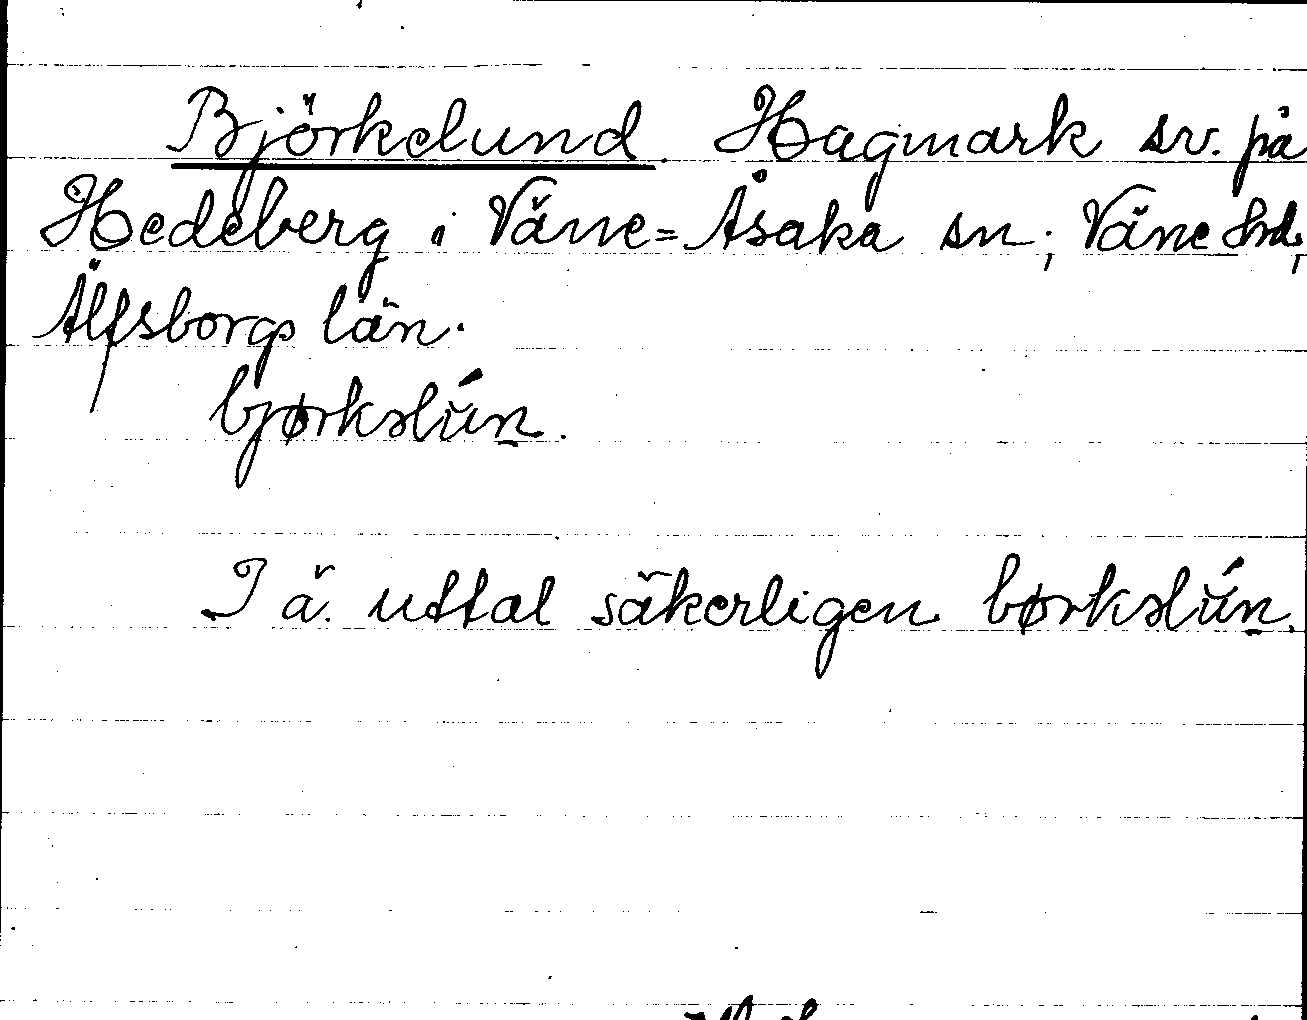 Björkelund. Hagmark sv. på
Hedeberg i Väne=Åsaka sn; Väne hd;
Älfsborgs län.
bjørkəlún.
I ä. uttal säkerligen børkəlún.